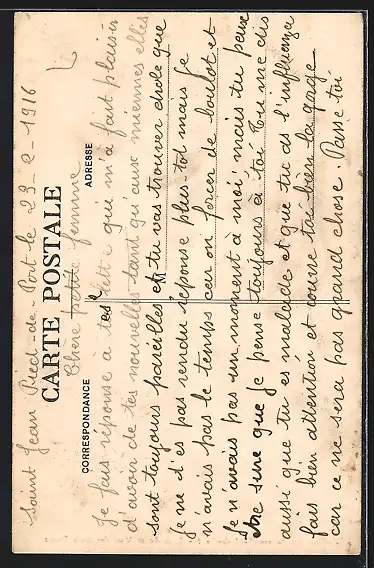 Saint Jean Pied-de-Port le 23-2-1916
CARTE POSTALE
CORRESPONDANCE
ADRESSE
Chère petite femme
Je fais réponse à ta lettre qui m'a fait plaisir
d'avoir de tes nouvelles tant qu'aux miennes elles
sont toujours pareilles et tu vas trouver drole que
Je ne t'es pas rendu réponse plus tot mais Je
n'avais pas le temps car on forcer de boulot et
Je n'avais pas un moment à moi mais tu peux
etre sure que Je pense toujours à toi Tu me dis
aussi que tu es malade et que tu as l'influenza
fais bien attention et couvre toi bien la gorge
car ce ne sera pas grand chose. Passe toi